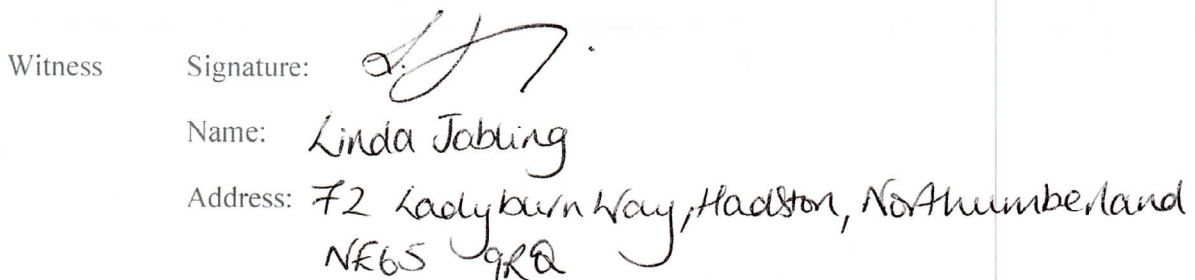 Witness Signature:
Name: Linda Jobling
Address: 72 Ladyburn Way, Hadston, Northumberland
NE65 9RQ